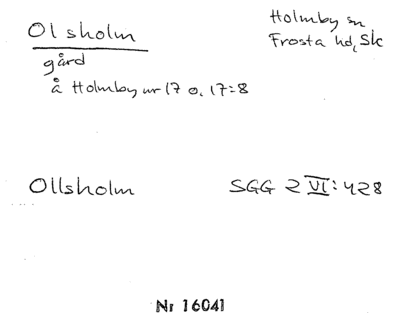 Olsholm
Holmby sn
Frosta hd, Sk
gård
å Holmby nr 17 o. 17:8
Ollsholm
SGG 2 VI: 428
Nr 16041